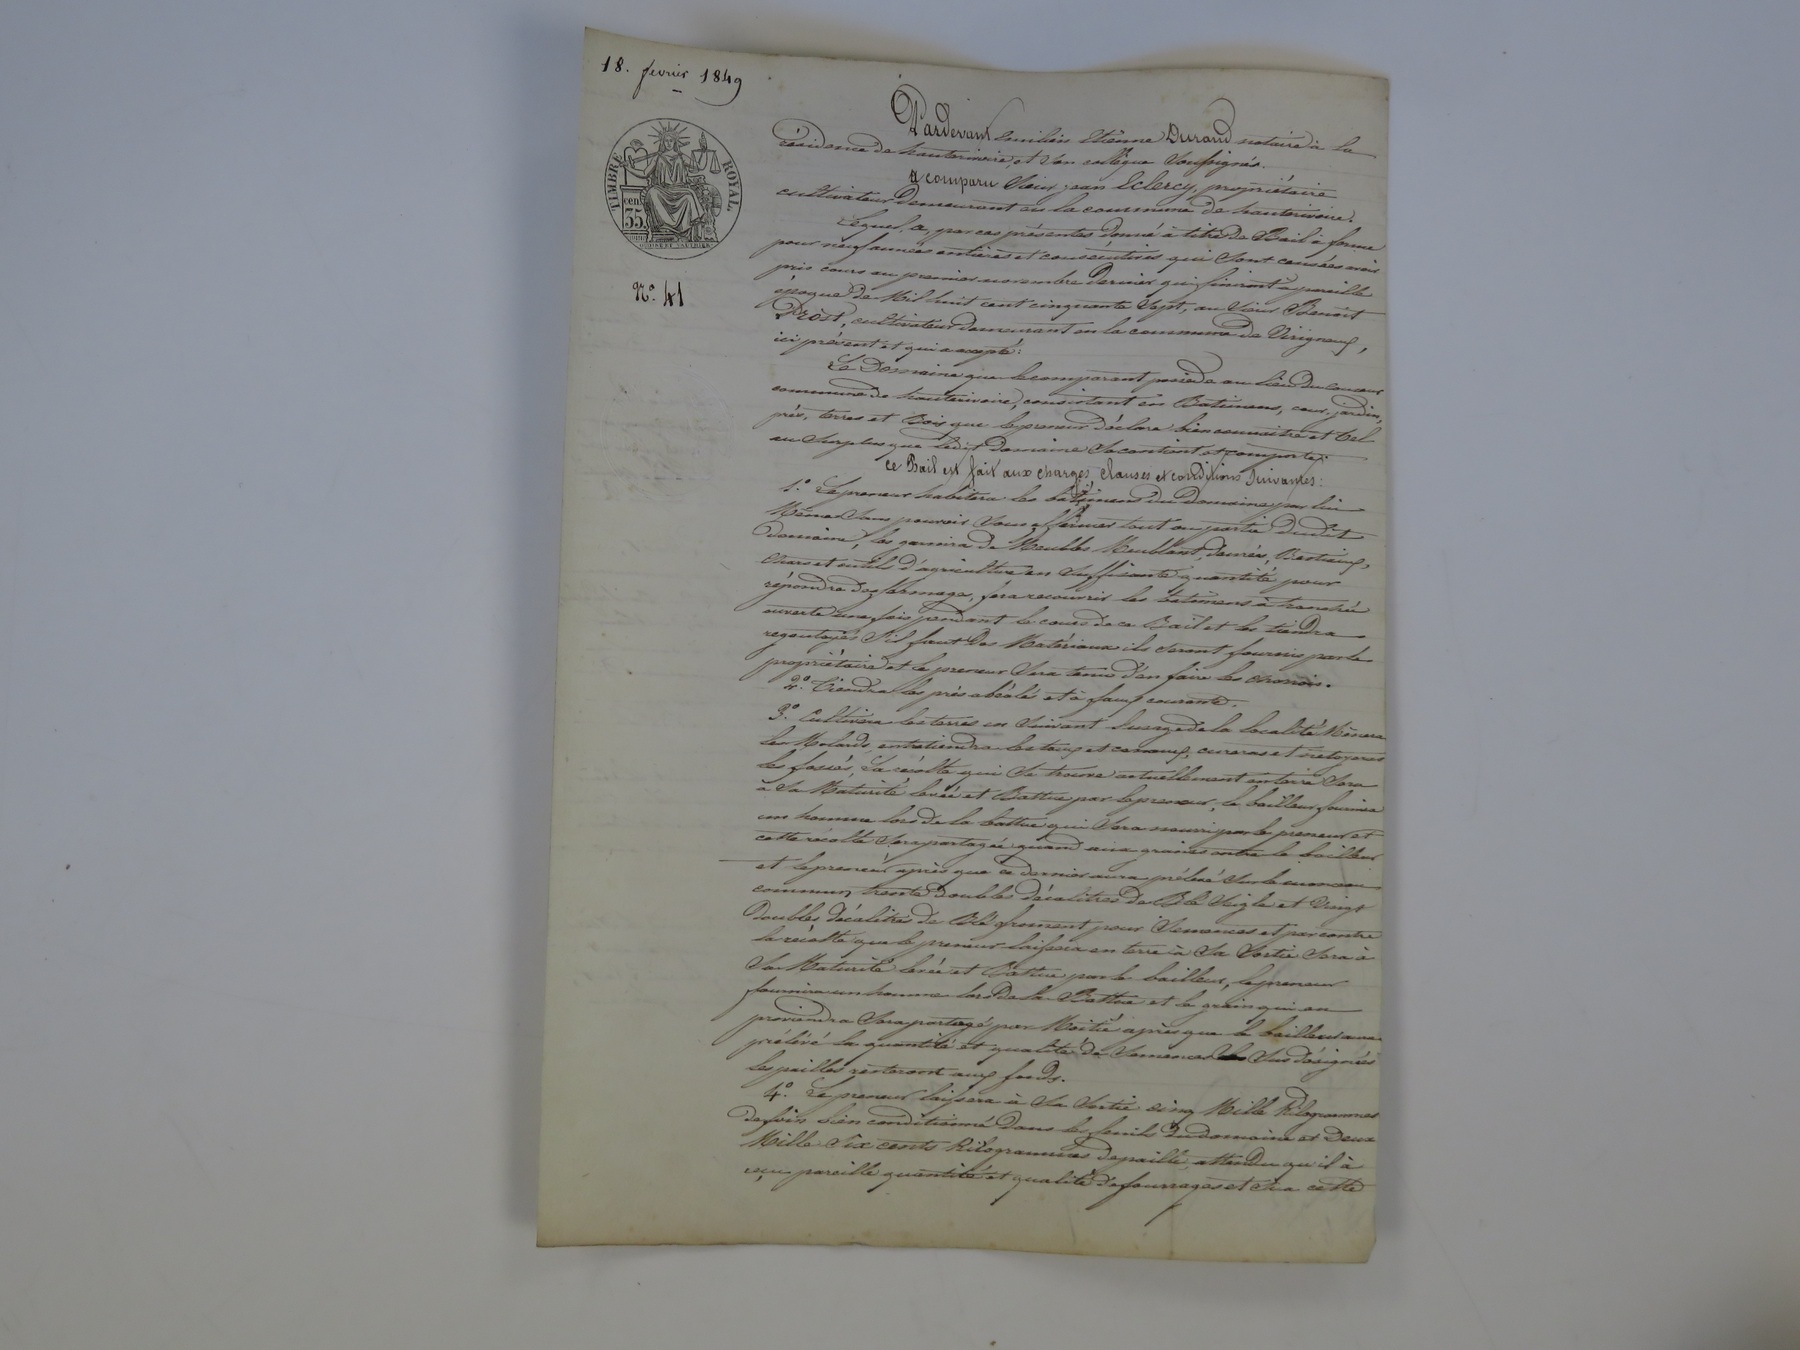 18. fevrier 1849
TIMBRE ROYAL
35 cen
N.° 41
Pardevant Emilien Etienne Durand notaire à la
résidence de hauterivoire, et son collègue soussignés.
a comparu Sieur jean Eclercy, propriétaire
cultivateur demeurant en la commune de hauterivoire.
Lequel, a, par ces présentes donné à titre de Bail à ferme
pour neuf années entières et consécutives qui sont censées avoir
pris cours au premier novembre dernier qui finiront à pareille
époque de Mil huit cent cinquante Sept, au Sieur Benoit
Prost, cultivateur demeurant en la commune de Virigneux,
ici présent et qui a accepté:
Le Domaine que le comparant posède au lieu du
commune de hauterivoire, consistant en Batimens, cour, jardin,
prés, terres et Bois que le preneur déclare bien connaitre et tel
au surplus que ledit domaine se contient et comporte.
ce Bail est fait aux charges, clauses et conditions Suivantes:
1.° Le preneur habitera les batimens du Domaine par lui
Même Sans pouvoir Sous affermer tout ou partie dudit
domaine, les garnira de Meubles Meublant, denrées, Bestiaux,
chars et outils d'agriculture en suffisante quantité pour
répondre des fermage, fera recouvrir les bâtimens à tranchée
ouverte une fois pendant le cours de ce Bail et les tiendra
regoutoyés S'il faut des Matériaux ils seront fournis par le
propriétaire et le preneur Sera tenu d'en faire les charrois.
2.° Tiendra les prés et à faux courante.
3.° Cultivera les terres en Suivant l'usage de la localité Mènera
les Molards, entretiendra les et canaux, curera et netoyera
les fossés, La récolte qui Se trouve actuellement en terre Sera
à Sa Maturité levée et Battue par le preneur, le bailleur fournira
un homme lors de la battue qui Sera nourri par le preneur et
cette récolte Sera partagée quand aux graines entre le bailleur
et le preneur après que ce dernier aura prélevé Sur le monceau
commun, trente doubles décalitres de Blé Seigle et Vingt
doubles décalitres de Blé froment pour Semences et par contre
la récolte que le preneur laissera en terre à Sa Sortie Sera à
Sa Maturité levée et Battue par le bailleur, le preneur
fournira un homme lors de la Battue et le grain qui en
proviendra Sera partagé par Moitié après que le bailleur aura
prélévé la quantité et qualité de Semences Sus désignées
les pailles resteront aux fonds.
4.° Le preneur laissera à Sa Sortie cinq Mille Kilogrammes
de foin bien conditionné dans les fenils du domaine et Deux
Mille Six cents Kilogrammes de paille attendu qu'il à
reçu pareille quantité et qualité de fourrages et Sera cette